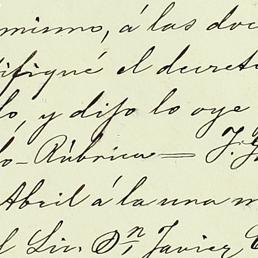 mismo, á las doc
ifiqué el decreto
lo, y dijo lo oye
lo-Rúbrica=J.
Abril á la una m
l Lic. Dn, Javier